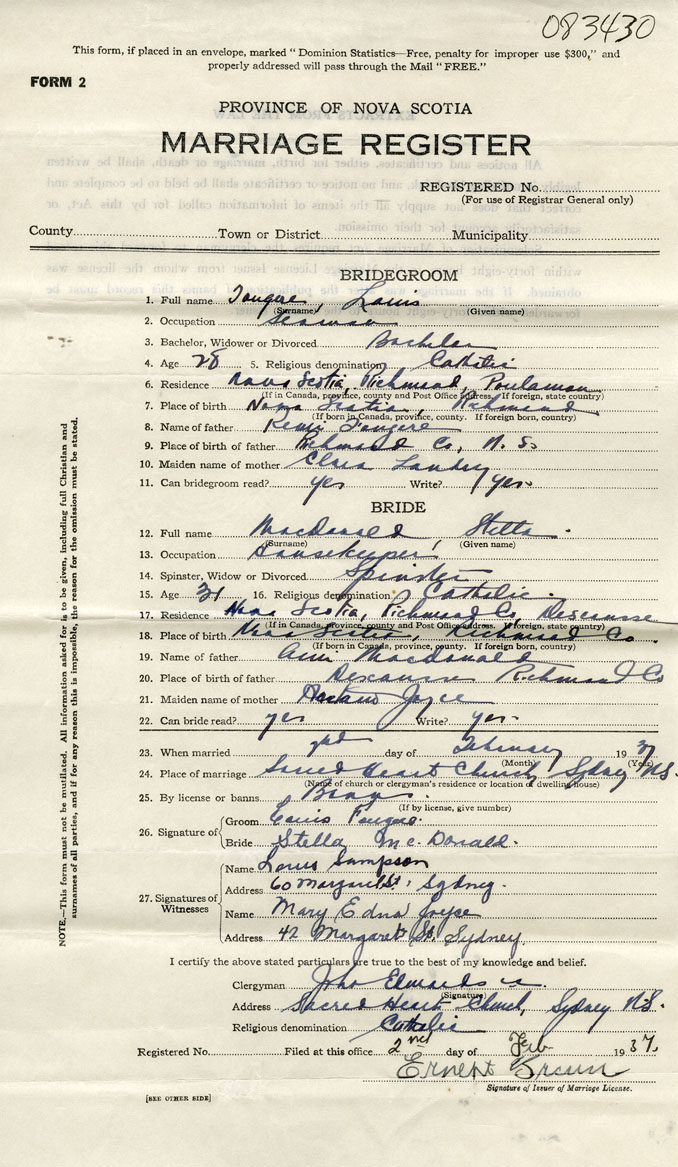 083430
This form, if placed in an envelope, marked "Dominion Statistics—Free, penalty for improper use $300," and
properly addressed will pass through the Mail "FREE."
FORM 2
PROVINCE OF NOVA SCOTIA
MARRIAGE REGISTER
REGISTERED No.
(For use of Registrar General only)
County Town or District Municipality
BRIDEGROOM
1. Full name Fougere, Louis
(Surname) (Given name)
2. Occupation Seaman
3. Bachelor, Widower or Divorced Bachelor
4. Age 28 5. Religious denomination Catholic
6. Residence Nova Scotia, Richmond, Poulamon
(If in Canada, province, county and Post Office address. If foreign, state country)
7. Place of birth Nova Scotia, Richmond
(If born in Canada, province, county. If foreign born, country)
8. Name of father Remi Fougere
9. Place of birth of father Richmond Co, N.S.
10. Maiden name of mother Clara Landry
11. Can bridegroom read? yes Write? yes.
BRIDE
12. Full name MacDonald, Stella.
(Surname) (Given name)
13. Occupation Housekeeper
14. Spinster, Widow or Divorced Spinster
15. Age 31 16. Religious denomination Catholic.
17. Residence Nova Scotia, Richmond Co, Descousse
(If in Canada, province, county and Post Office address. If foreign, state country)
18. Place of birth Nova Scotia, Richmond Co.
(If born in Canada, province, county. If foreign born, country)
19. Name of father Macdonald
20. Place of birth of father Descousse Richmond Co
21. Maiden name of mother Joyce
22. Can bride read? yes Write? yes.
23. When married day of February 1937
(Month) (Year)
24. Place of marriage Sacred Heart Church, Sydney N.S.
(Name of church or clergyman's residence or location of dwelling house)
25. By license or banns Banns.
(If by license, give number)
26. Signature of Groom Louis Fougere.
Bride Stella McDonald.
27. Signatures of Witnesses
Name Louis Sampson
Address 60 Margaret St, Sydney.
Name Mary Edna Joyce
Address 42 Margaret St. Sydney.
I certify the above stated particulars are true to the best of my knowledge and belief.
Clergyman John Edwards
(Signature)
Address Sacred Heart Church, Sydney N.S.
Religious denomination Catholic
Registered No. Filed at this office 2nd day of Feb 1937.
Ernest Brown
Signature of Issuer of Marriage License.
[SEE OTHER SIDE]
NOTE.—This form must not be mutilated. All information asked for is to be given, including full Christian and
surnames of all parties, and if for any reason this is impossible, the reason for the omission must be stated.